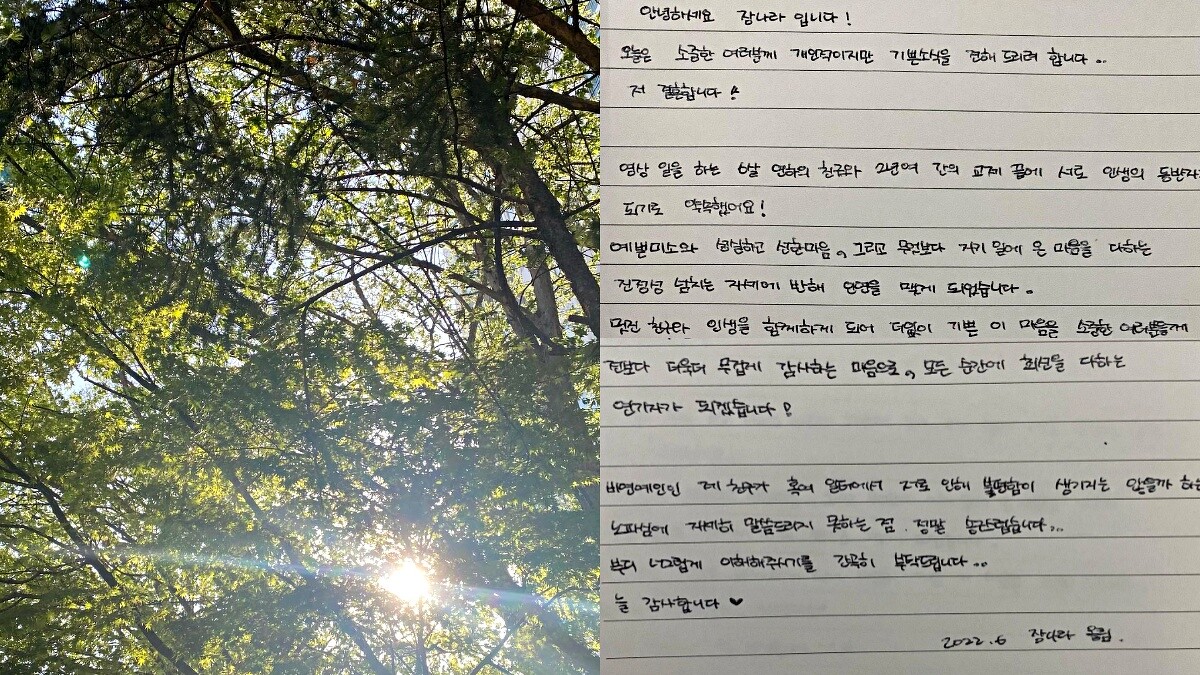 안녕하세요 장나라 입니다!
오늘은 소중한 여러분께 개인적이지만 기쁜소식을 전해 드리려 합니다..
저 결혼합니다!
영상 일을 하는 6살 연하의 친구와 2년여 간의 교제 끝에 서로 인생의 동반자
되기로 약속했어요!
예쁜미소와 성실하고 선한마음, 그리고 무엇보다 자기 일에 온 마음을 다하는
진정성 넘치는 자세에 반해 인연을 맺게 되었습니다.
멋진 친구와 인생을 함께하게 되어 더없이 기쁜 이 마음을 소중한 여러분들께
전보다 더욱더 무겁게 감사하는 마음으로, 모든 순간에 최선을 다하는
연기자가 되겠습니다!
비연예인인 제 친구가 혹여 일터에서 저로 인해 불편함이 생기지는 않을까 하는
노파심에 자세히 말씀드리지 못하는 점. 정말 송구스럽습니다...
부디 너그럽게 이해해주시기를 간곡히 부탁드립니다..
늘 감사합니다 ♥
2022.6 장나라 올림.